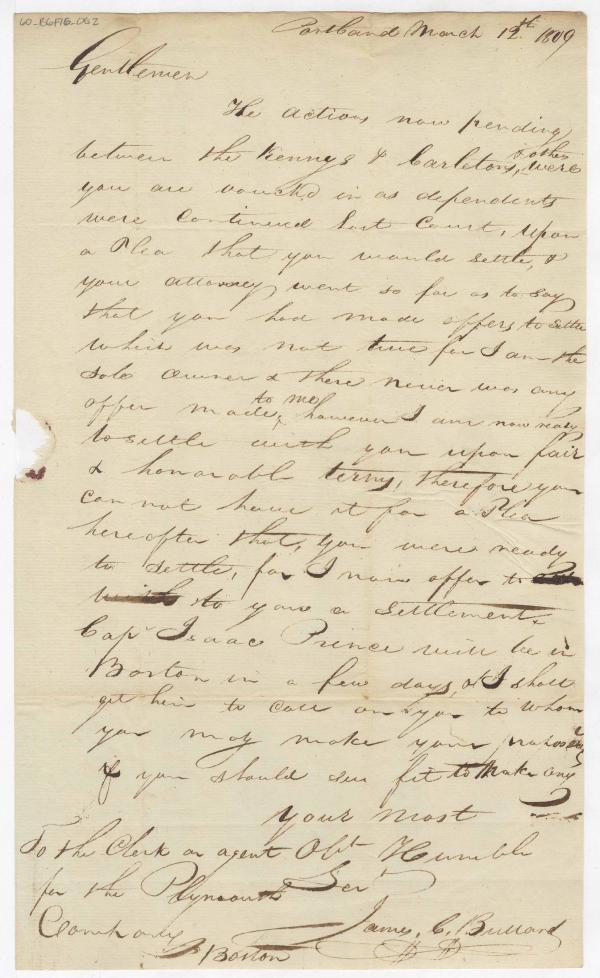 60_B6F76_062
Portland March 12th. 1809
Gentlemen
The actions now pending
between the Kennys & Carletons, & others, were
you are vouched in as dependents
were Continued last Court, upon
a Plea that you would settle, &
your attorney went so far as to say
that you had made offers to settle
which was not true for I am the
sole owner & there never was any
offer made, to me however I am now ready
to settle with you upon fair
& honorable terms, therefore you
can not have it for a Plea
hereafter that, you were ready
to settle, for I now offer to
with to you a settlement.
Capt Isaac Prince will be in
Boston in a few days, & I shall
get him to call on you to whom
you may make your proposals
if you should see fit to make any
your most
Obt Humble
Servt
James. C. Bullard
To the Clerk or agent
for the Plymouth
Company
Boston